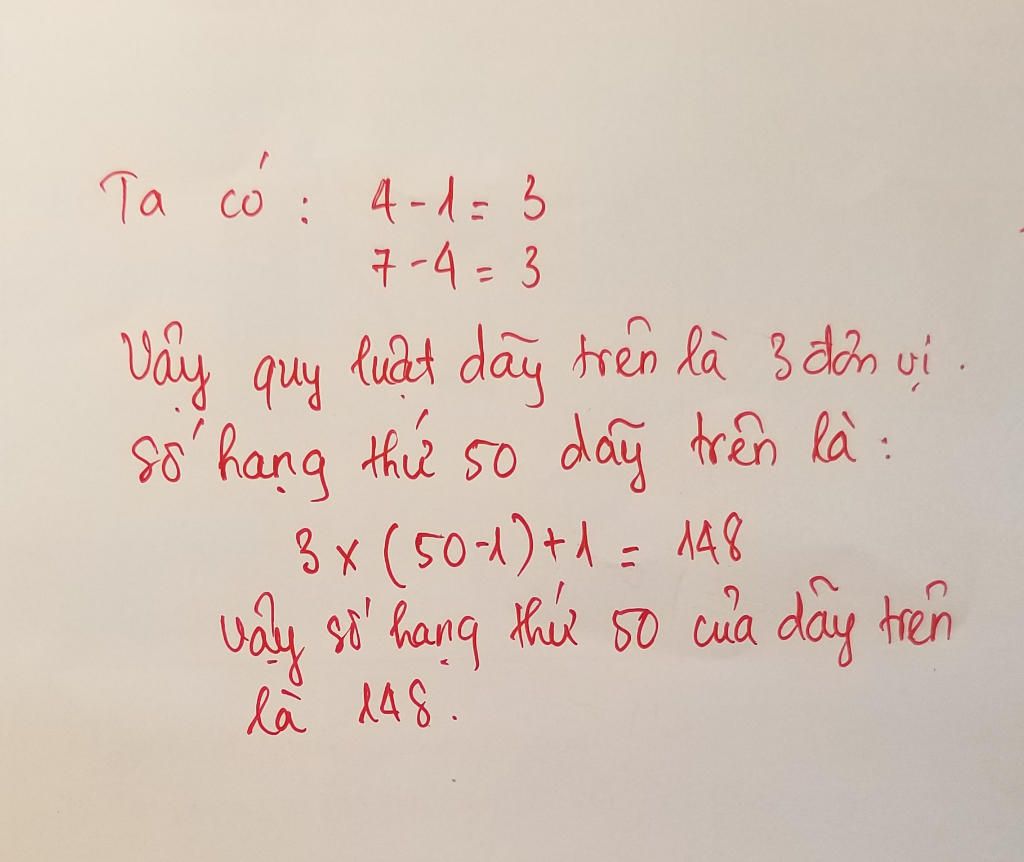 Ta có : 4 - 1 = 3
7 - 4 = 3
Vậy quy luật dãy trên là 3 đơn vị .
Số hạng thứ 50 dãy trên là :
3 x ( 50 - 1 ) + 1 = 148
Vậy số hạng thứ 50 của dãy trên
là 148 .